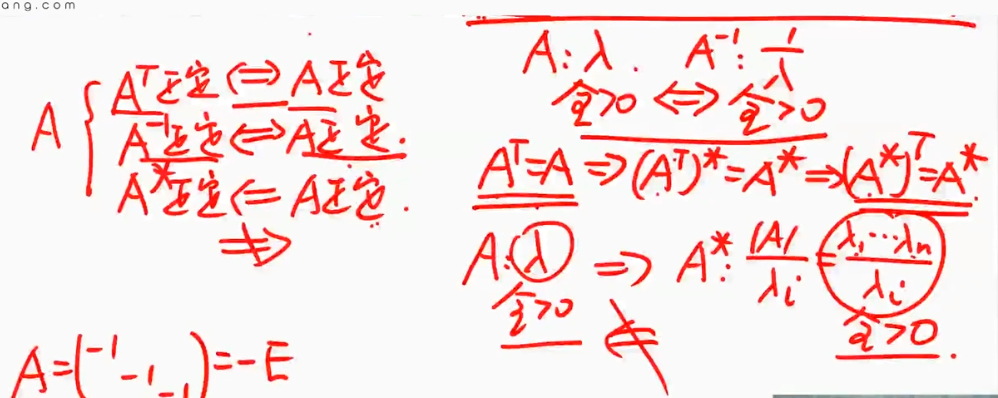 ang.com
A { Aᵀ正定 ⟺ A正定
A⁻¹正定 ⟺ A正定.
A*正定 ⟸ A正定.
⇏
A = (-1 -1 -1) = -E
A: λ. A⁻¹: 1/λ
全>0 ⟺ 全>0
Aᵀ=A ⟹ (Aᵀ)*=A* ⟹ (A*)ᵀ=A*
A: λ ⟹ A*: |A|/λᵢ = λ₁⋯λₙ/λᵢ
全>0 ⇍ 全>0.